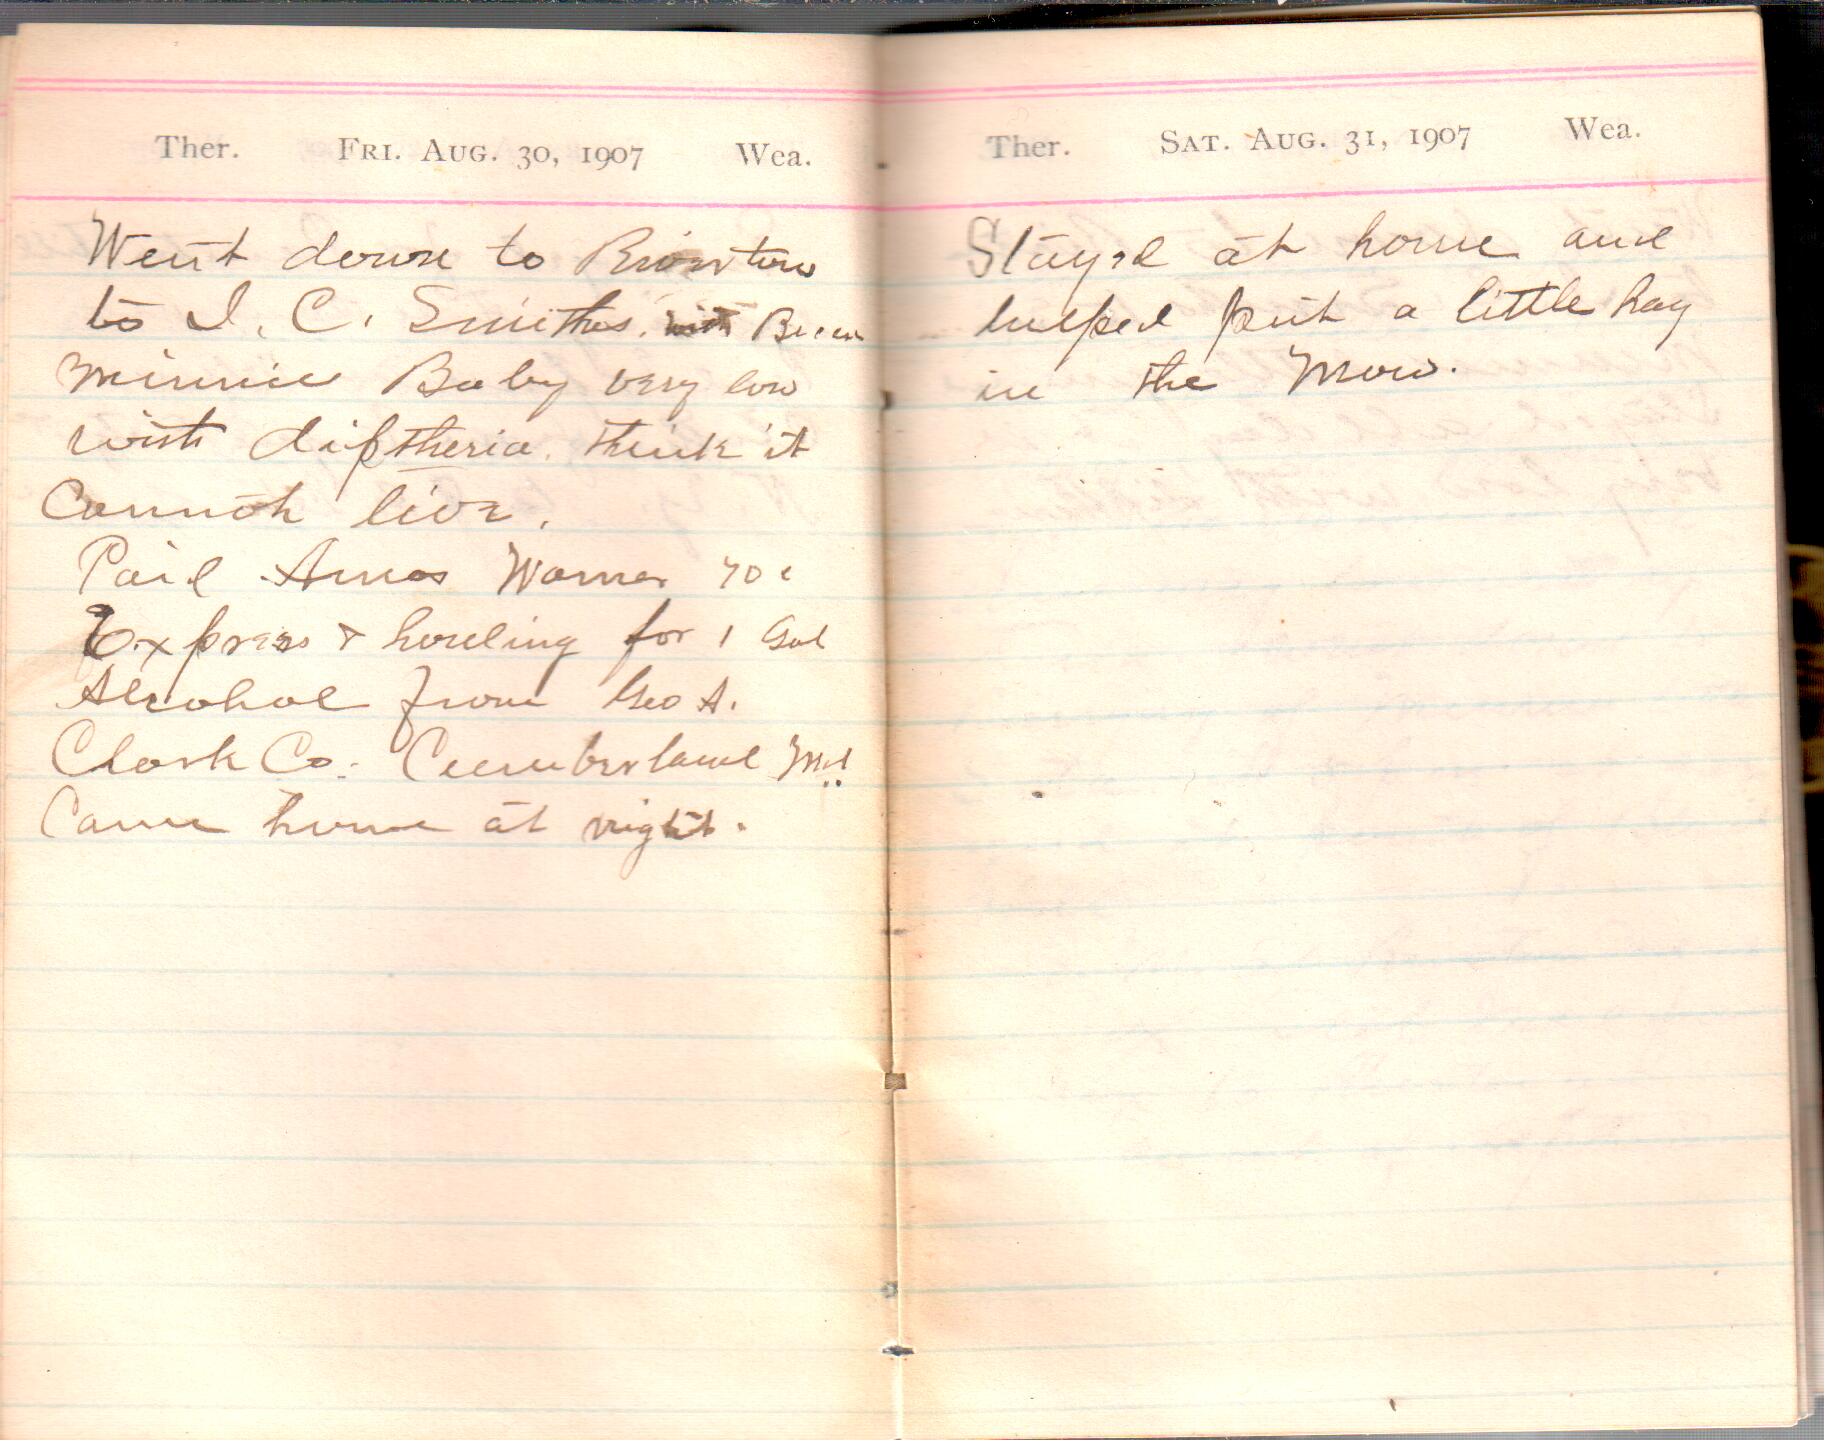 Ther. FRI. AUG. 30, 1907 Wea.
Went down to Riverton
to I. C. Smiths. with
Minnie Baby very low
with diftheria. think it
Cannot live.
Paid Amos Warner 70c
Express & houling for 1 Gal
Alcohol from Geo A.
Clark Co. Cumberland Md
Came home at night.
Ther. SAT. AUG. 31, 1907 Wea.
Stayed at home and
helped put a little hay
in the Mow.